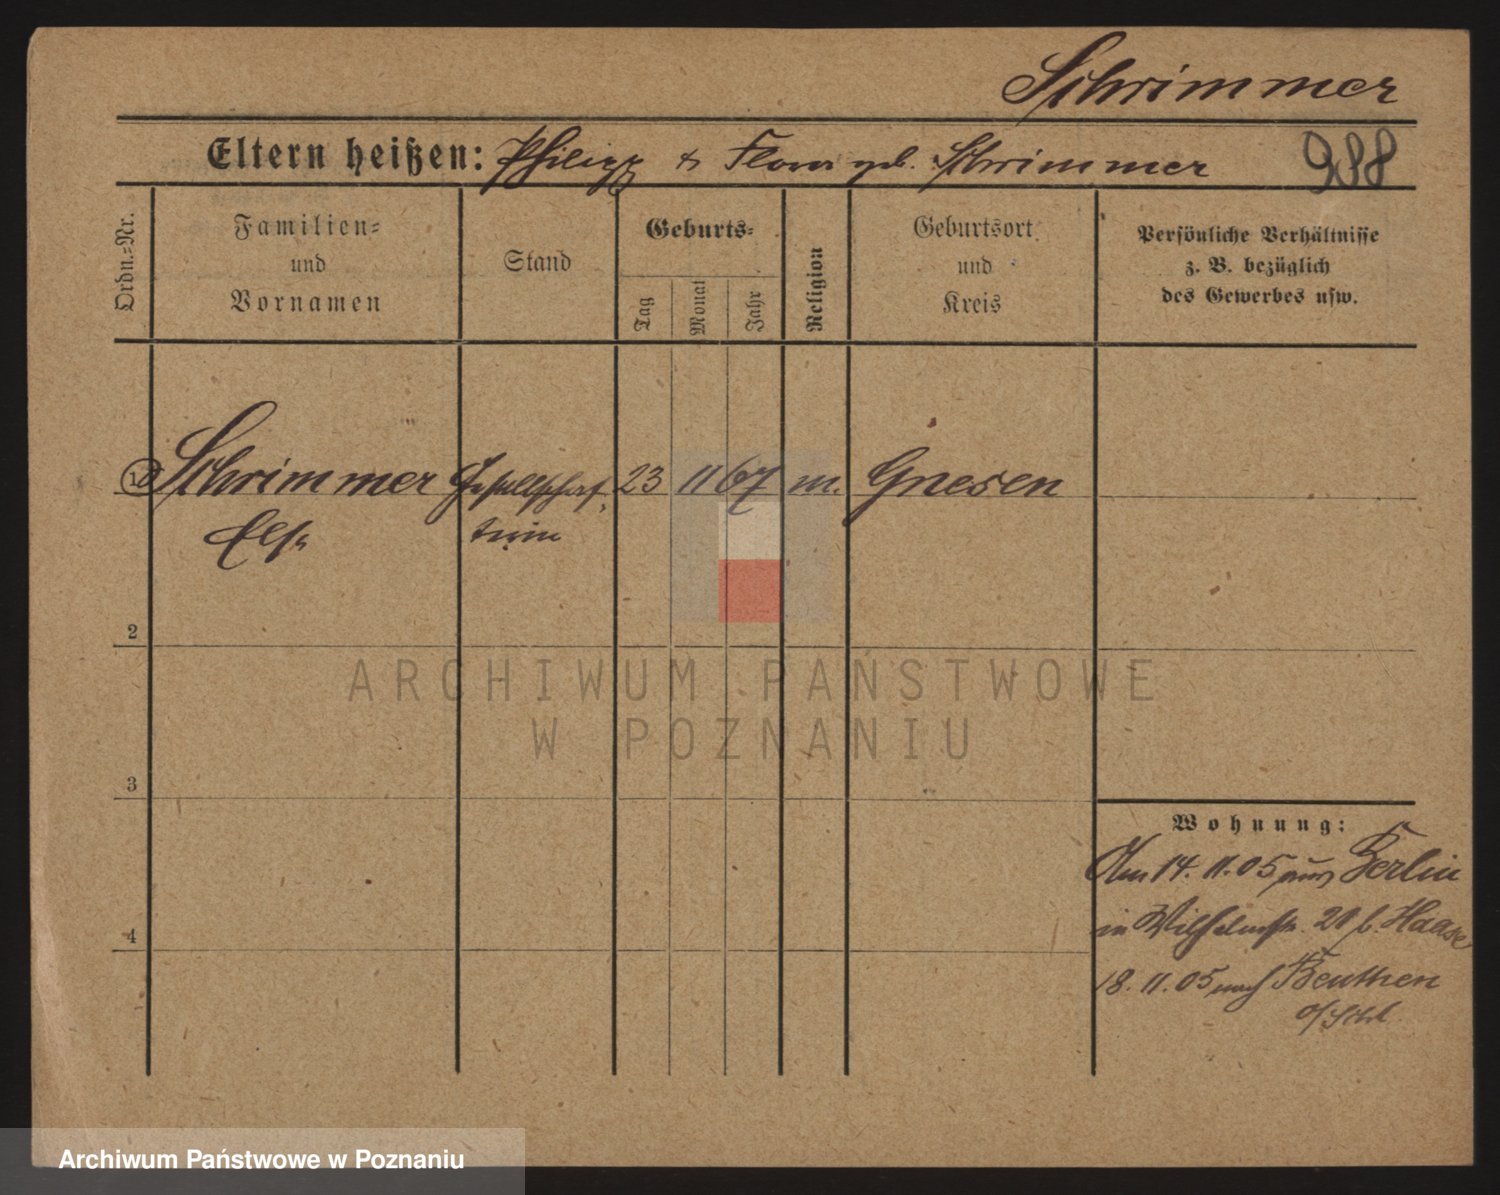 Schrimmer
Eltern heißen: Philipp & Flora geb. Schrimmer 988
Ordn.-Nr.
Familien-
und
Vornamen
Stand
Geburts-
Tag
Monat
Jahr
Religion
Geburtsort
und
Kreis
Persönliche Verhältnisse
z. B. bezüglich
des Gewerbes usw.
1 Schrimmer Gesellschaf- 23 11 67 m. Gnesen
Else terin
2
3
4
Wohnung:
Am 14. 11. 05 aus Berlin
in Wilhelmstr. 20 b. Haase
18. 11. 05 nach Beuthen
o/Schl.
ARCHIWUM PAŃSTWOWE
W POZNANIU
Archiwum Państwowe w Poznaniu